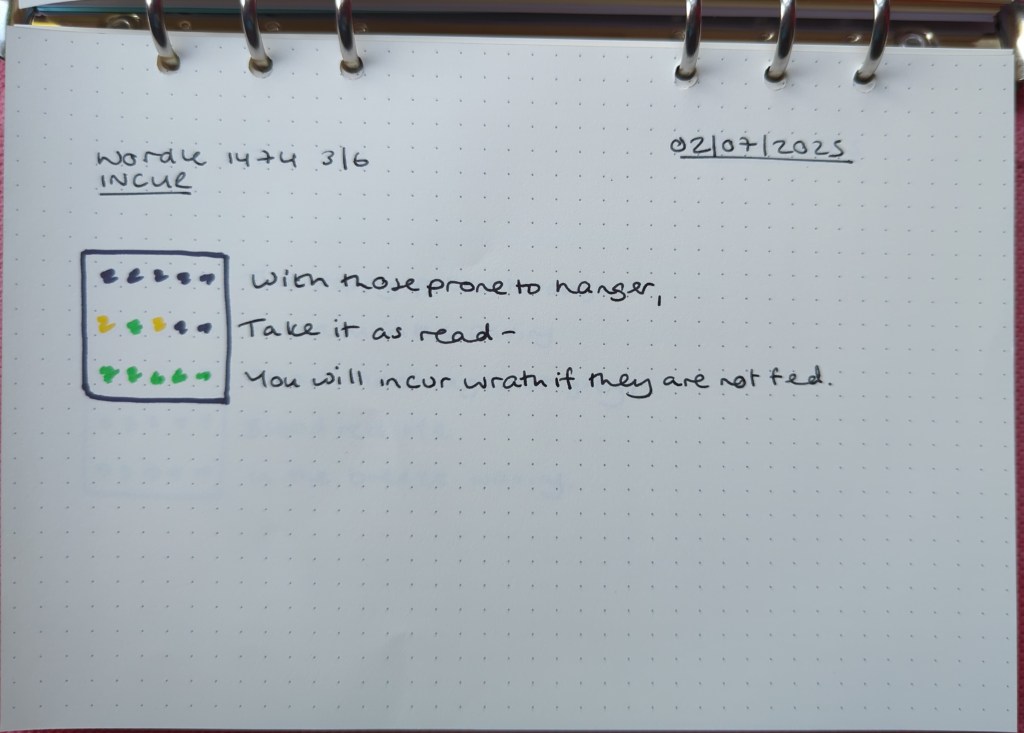 Wordle 1474 3/6
INCUR
02/07/2025
With those prone to hanger,
Take it as read-
You will incur wrath if they are not fed.